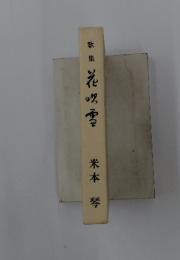 歌集
花吹雪
米本 琴